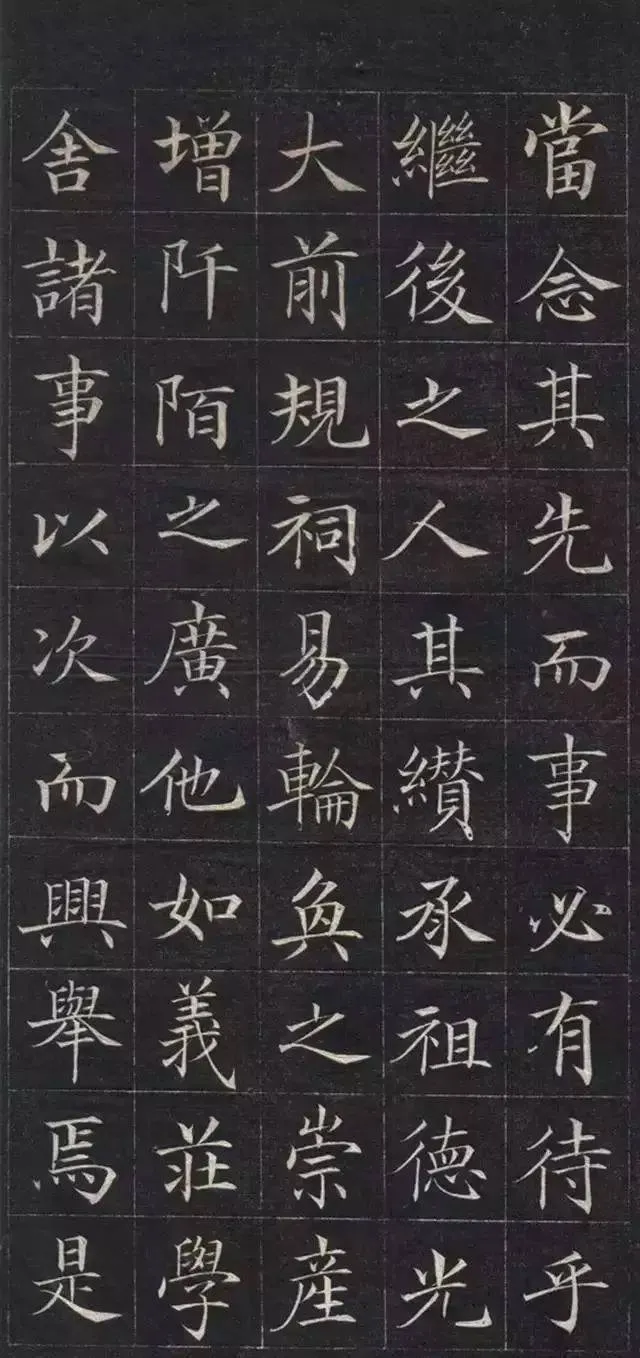 當念其先而事必有待乎
繼後之人其纘承祖德光
大前規祠易輪奐之崇產
增阡陌之廣他如義莊學
舍諸事以次而興舉焉是